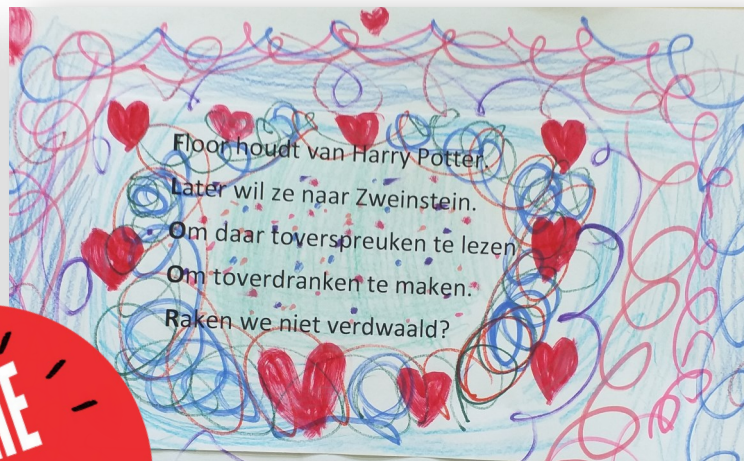 Floor houdt van Harry Potter.
Later wil ze naar Zweinstein.
Om daar toverspreuken te lezen
Om toverdranken te maken.
Raken we niet verdwaald?